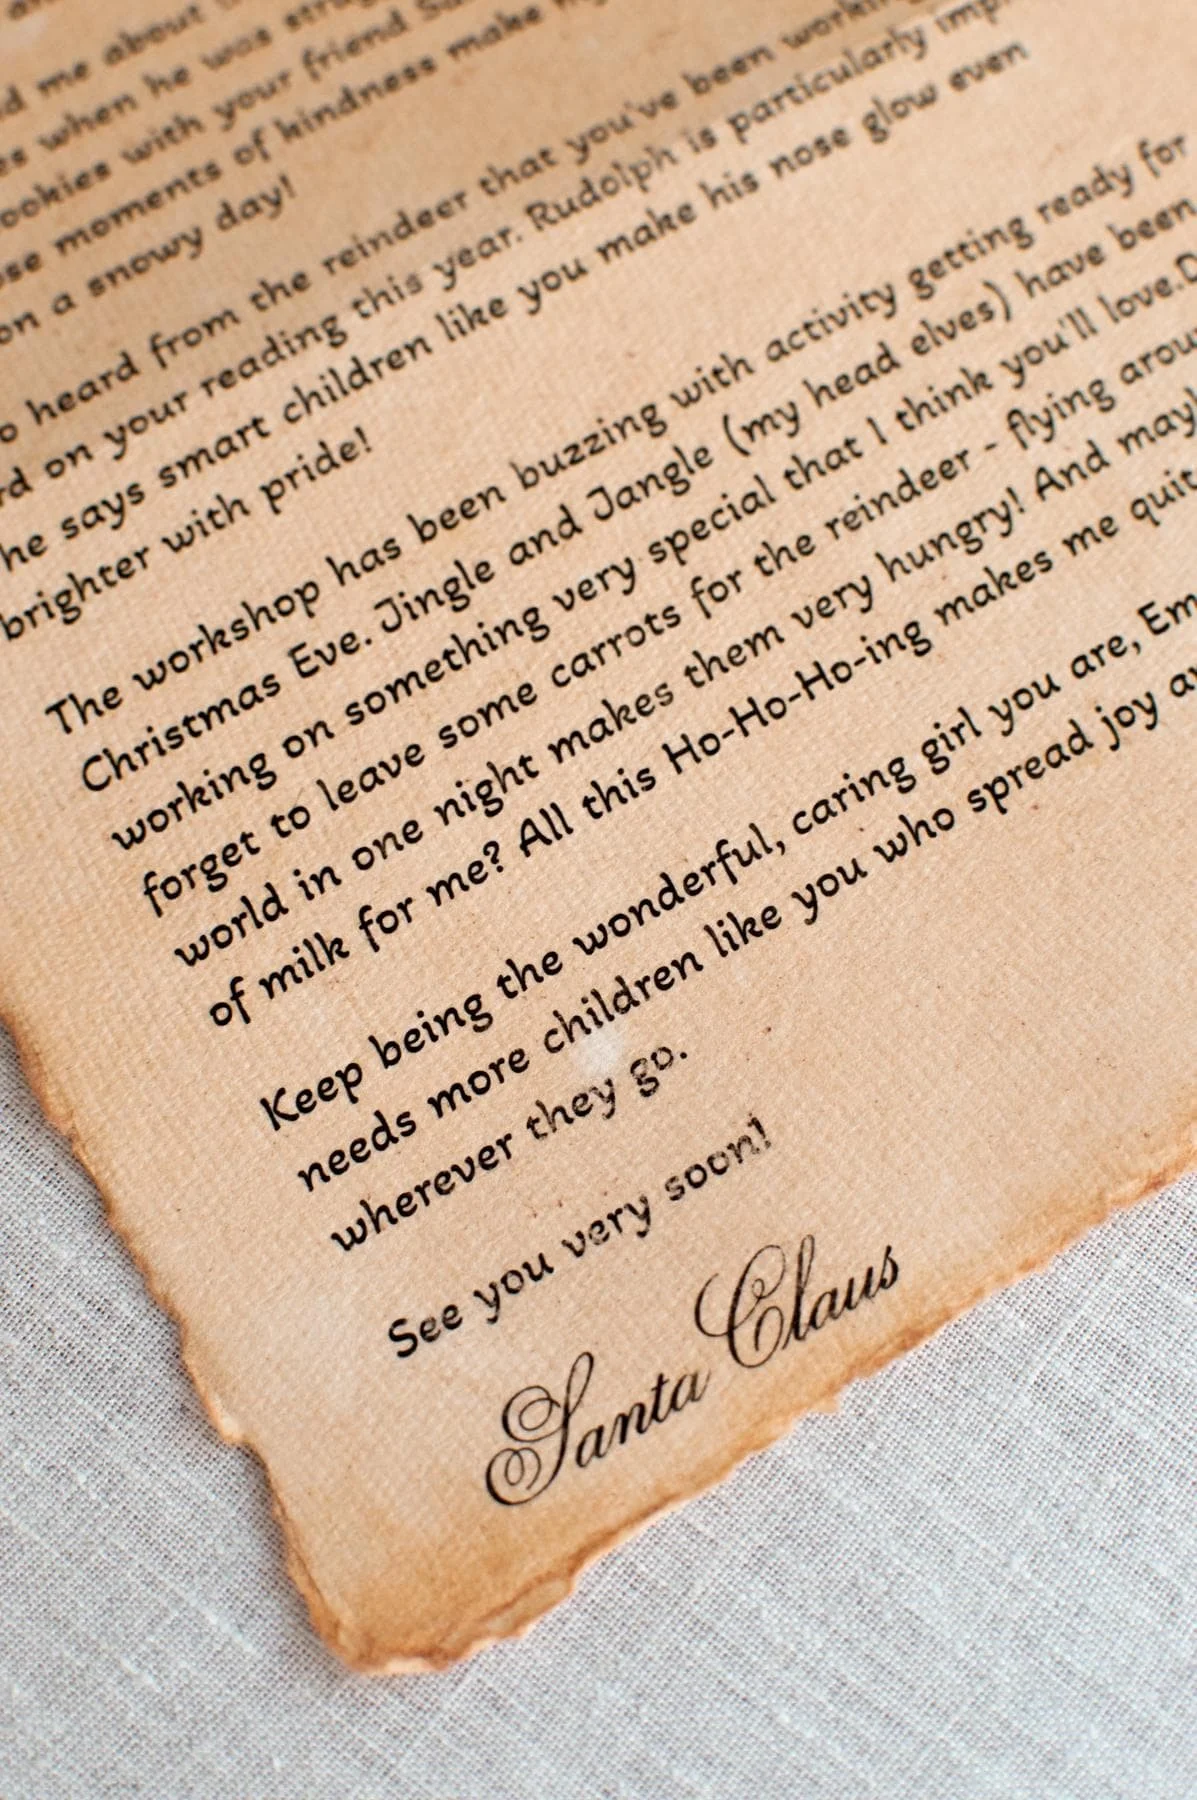 me about
when he was
cookies with your friend
moments of kindness make
on a snowy day!
heard from the reindeer that you've been working
on your reading this year. Rudolph is particularly
he says smart children like you make his nose glow even
brighter with pride!
The workshop has been buzzing with activity getting ready for
Christmas Eve. Jingle and Jangle (my head elves) have been
working on something very special that I think you'll love.D
forget to leave some carrots for the reindeer - flying
world in one night makes them very hungry! And
of milk for me? All this Ho-Ho-Ho-ing makes me
Keep being the wonderful, caring girl you are, Em
needs more children like you who spread joy
wherever they go.
See you very soon!
Santa Claus